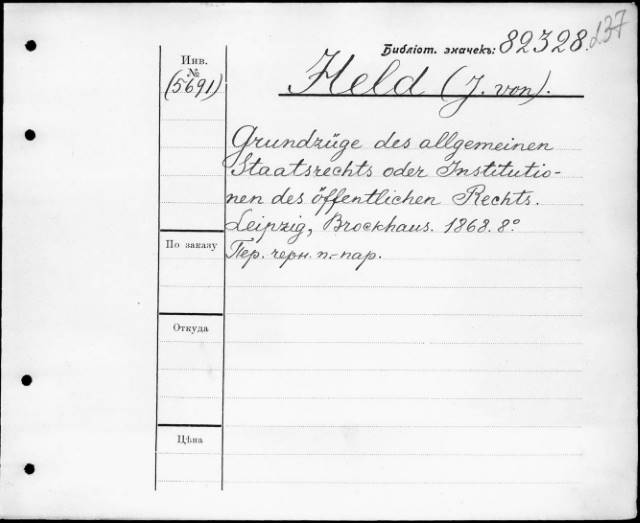 Библіот. значекъ: 82328.d37
Инв.
№
(5691)
Held (J. von).
Grundzüge des allgemeinen
Staatsrechts oder Institutio-
nen des öffentlichen Rechts.
Leipzig, Brockhaus. 1868. 8º
Пер. черн. п.-пар.
По заказу
Откуда
Цѣна